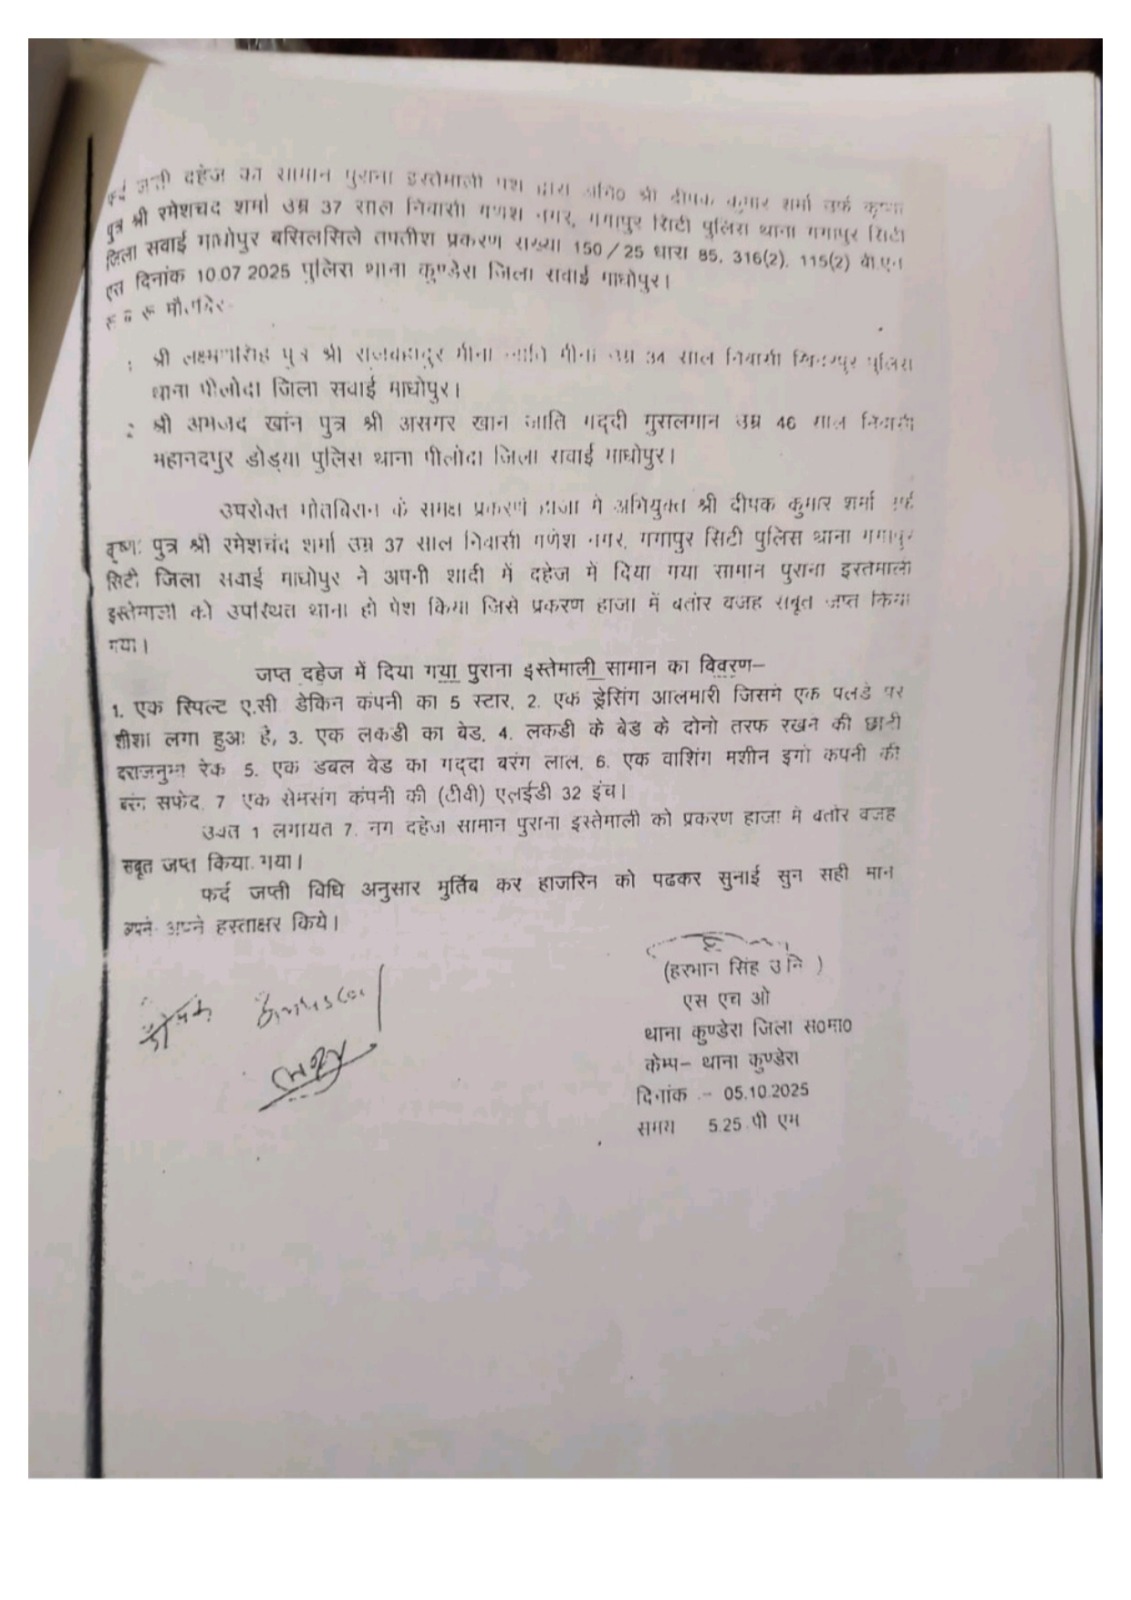 फर्द जप्ती दहेज का सामान पुराना इस्तेमाली पेश द्वारा अभि० श्री दीपक कुमार शर्मा उर्फ कृष्णा
पुत्र श्री रमेशचद शर्मा उम्र 37 साल निवासी गणेश नगर, गंगापुर सिटी पुलिस थाना गंगापुर सिटी
जिला सवाई माधोपुर बसिलसिले तफ्तीश प्रकरण संख्या 150/25 धारा 85, 316(2), 115(2) बी.एन
एस दिनांक 10.07.2025 पुलिस थाना कुण्डेरा जिला सवाई माधोपुर।
रू ब रू मौतबिर
1 श्री लक्ष्मणसिंह पुत्र श्री राजबहादुर मीना जाति मीना उम्र 34 साल निवासी पुलिस
थाना पीलोदा जिला सवाई माधोपुर।
2 श्री अमजद खांन पुत्र श्री असगर खान जाति गद्दी मुसलमान उम्र 46 साल निवासी
महानदपुर डोड्या पुलिस थाना पीलोदा जिला सवाई माधोपुर।
उपरोक्त मोतबिरान के समक्ष प्रकरण हाजा मे अभियुक्त श्री दीपक कुमार शर्मा उर्फ
कृष्णा पुत्र श्री रमेशचंद शर्मा उम्र 37 साल निवासी गणेश नगर, गंगापुर सिटी पुलिस थाना गंगापुर
सिटी जिला सवाई माधोपुर ने अपनी शादी में दहेज में दिया गया सामान पुराना इस्तेमाली
इस्तेमाली को उपस्थित थाना हो पेश किया जिसे प्रकरण हाजा में बतोर वजह सबूत जप्त किया
गया।
जप्त दहेज में दिया गया पुराना इस्तेमाली सामान का विवरण–
1. एक स्पिल्ट ए.सी डेकिन कंपनी का 5 स्टार, 2. एक ड्रेसिंग आलमारी जिसमे एक पलडे पर
शीशा लगा हुआ है, 3. एक लकडी का बेड, 4. लकडी के बेड के दोनो तरफ रखने की छोटी
दराजनुमा रेक 5. एक डबल बेड का गद्दा बरंग लाल, 6. एक वाशिंग मशीन इगो कंपनी की
बरंग सफेद, 7 एक सेमसंग कंपनी की (टीवी) एलईडी 32 इंच।
उक्त 1 लगायत 7. नग दहेज सामान पुराना इस्तेमाली को प्रकरण हाजा मे बतोर वजह
सबूत जप्त किया गया।
फर्द जप्ती विधि अनुसार मुर्तिब कर हाजरिन को पढकर सुनाई सुन सही मान
अपने अपने हस्ताक्षर किये।
(हरभान सिंह उ नि )
एस एच ओ
थाना कुण्डेरा जिला स०मा०
केम्प– थाना कुण्डेरा
दिनांक :– 05.10.2025
समय 5.25 पी एम